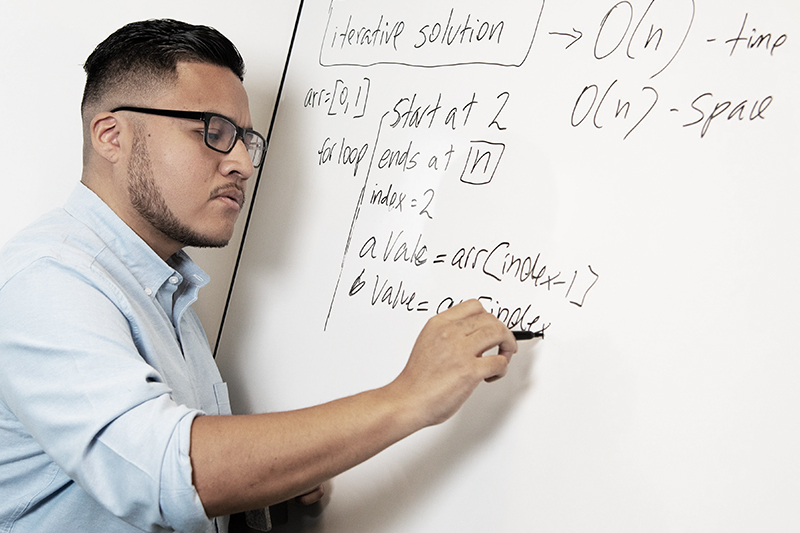 iterative solution → O(n) - time
O(n) - space
arr=[0,1]
for loop
Start at 2
ends at n
index = 2
a Vale = arr[index-1]
b Value = arr[index